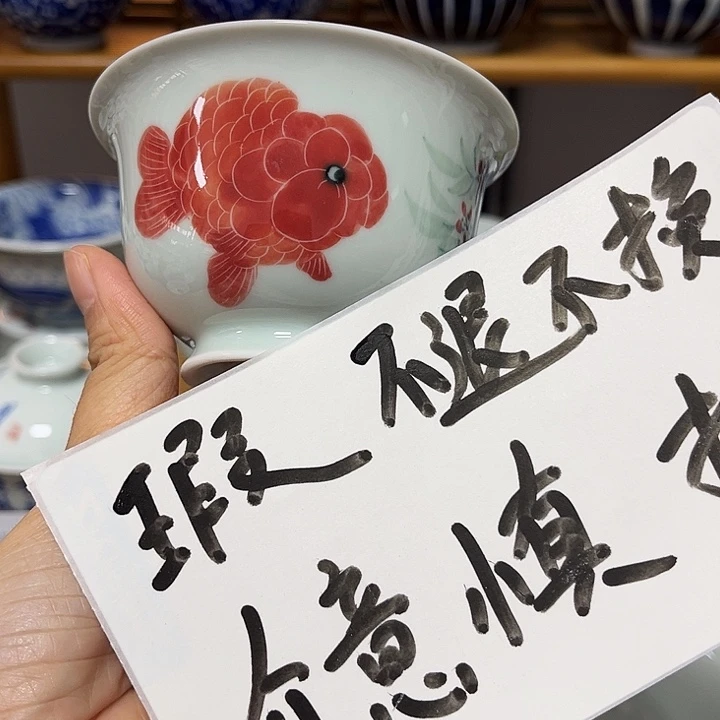 瑕 不退不换
介意慎